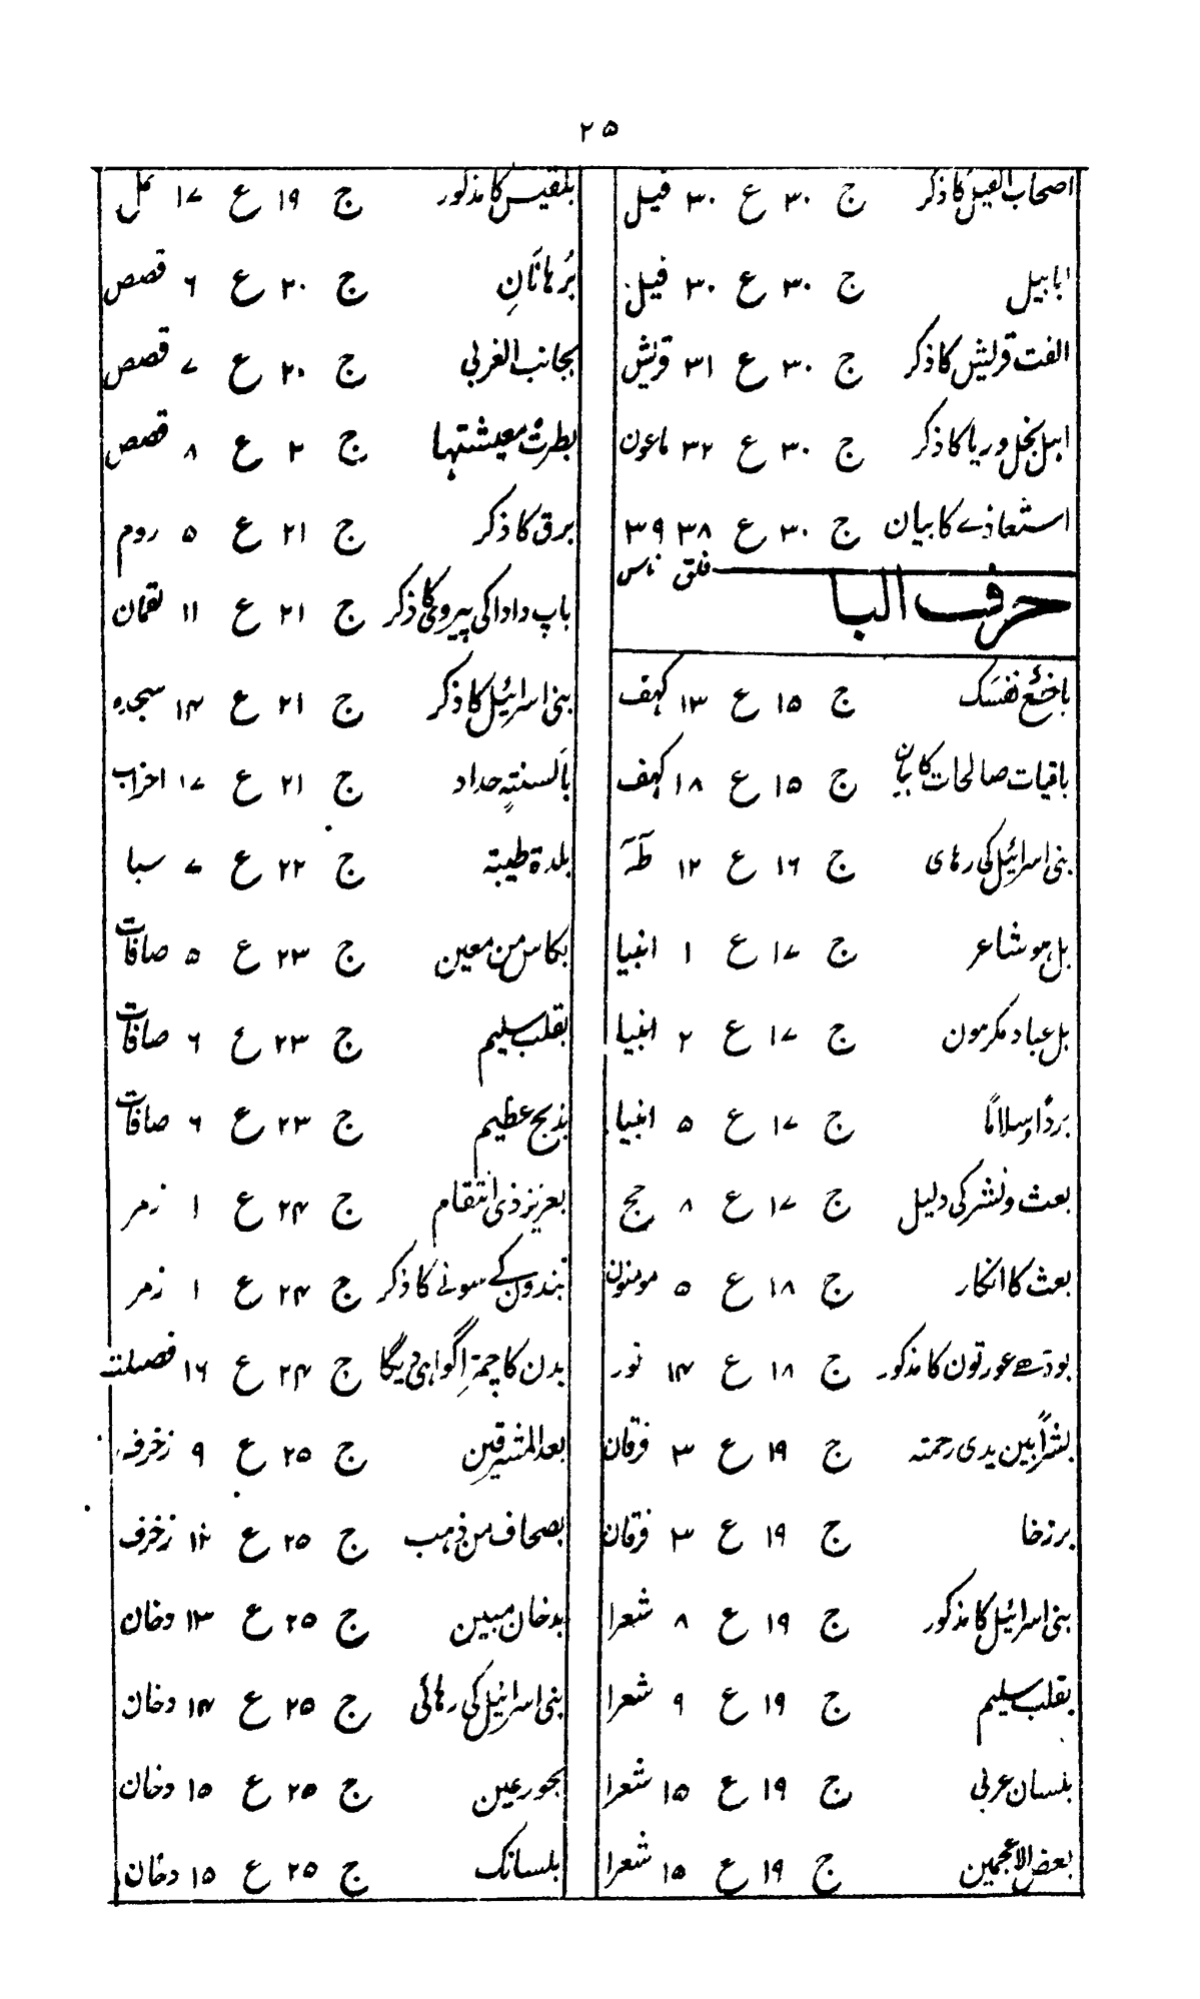 ۲۵
اصحاب الفیل کا ذکر ج ۳۰ ع ۳۰ فیل
ابابیل ج ۳۰ ع ۳۰ فیل
الفت قریش کا ذکر ج ۳۰ ع ۳۱ قریش
اہل بخل و ریا کا ذکر ج ۳۰ ع ۳۲ ماعون
استعاذے کا بیان ج ۳۰ ع ۳۸ ۳۹
فلق ناس
حرف البا
باخع نفسک ج ۱۵ ع ۱۳ کہف
باقیات صالحات کا بیان ج ۱۵ ع ۱۸ کہف
بنی اسرائیل کی رہای ج ۱۶ ع ۱۲ طٰہٰ
بل ہو شاعر ج ۱۷ ع ۱ انبیا
بل عباد مکرمون ج ۱۷ ع ۲ انبیا
برداً وسلاماً ج ۱۷ ع ۵ انبیا
بعث و نشر کی دلیل ج ۱۷ ع ۸ حج
بعث کا انکار ج ۱۸ ع ۵ مومنون
بوڈھے عورتون کا مذکور ج ۱۸ ع ۱۴ نور
بشراً بین یدی رحمتہ ج ۱۹ ع ۳ فرقان
برزخا ج ۱۹ ع ۳ فرقان
بنی اسرائیل کا مذکور ج ۱۹ ع ۸ شعرا
بقلب سلیم ج ۱۹ ع ۹ شعرا
بلسان عربی ج ۱۹ ع ۱۵ شعرا
بعض الاعجمین ج ۱۹ ع ۱۵ شعرا
بلقیس کا مذکور ج ۱۹ ع ۱۷ نمل
بُرہانَانِ ج ۲۰ ع ۶ قصص
بجانب الغربی ج ۲۰ ع ۷ قصص
بطرت معیشتہا ج ۲ ع ۸ قصص
برق کا ذکر ج ۲۱ ع ۵ روم
باپ دادا کی پیروی کا ذکر ج ۲۱ ع ۱۱ لقمان
بنی اسرائیل کا ذکر ج ۲۱ ع ۱۴ سجدہ
بالسنتہٍ حداد ج ۲۱ ع ۱۷ احزاب
بلدة طیبتہ ج ۲۲ ع ۷ سبا
بکاس من معین ج ۲۳ ع ۵ صافات
بقلب سلیم ج ۲۳ ع ۶ صافات
بذبح عظیم ج ۲۳ ع ۶ صافات
بعزیز ذی انتقام ج ۲۴ ع ۱ زمر
بندون کے سونے کا ذکر ج ۲۴ ع ۱ زمر
بدن کا چمڑا گواہی دیگا ج ۲۴ ع ۱۶ فصلت
بعد المشرقین ج ۲۵ ع ۹ زخرف
بصحاف من ذہب ج ۲۵ ع ۱۲ زخرف
بدخان مبین ج ۲۵ ع ۱۳ دخان
بنی اسرائیل کی رہائی ج ۲۵ ع ۱۴ دخان
بحور عین ج ۲۵ ع ۱۵ دخان
بلسانک ج ۲۵ ع ۱۵ دخان